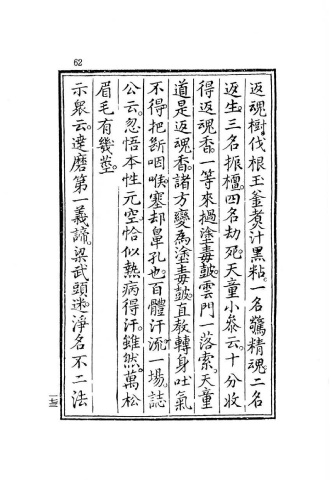 62
返魂樹伐根玉釜煑汁黑粘。一名驚精魂。二名
返生。三名振檀。四名劫死。天童小叅云。十分收
得返魂香。一等來撾塗毒皷。雲門一落索。天童
道是返魂香。諸方變為塗毒皷直教轉身吐氣
不得把斷咽喉。塞却鼻孔也。百體汗流一場。誌
公云。忽悟本性元空恰似熱病得汗。雖然。萬松
眉毛有幾莖。
示衆云。達磨第一義諦。梁武頭迷。淨名不二法